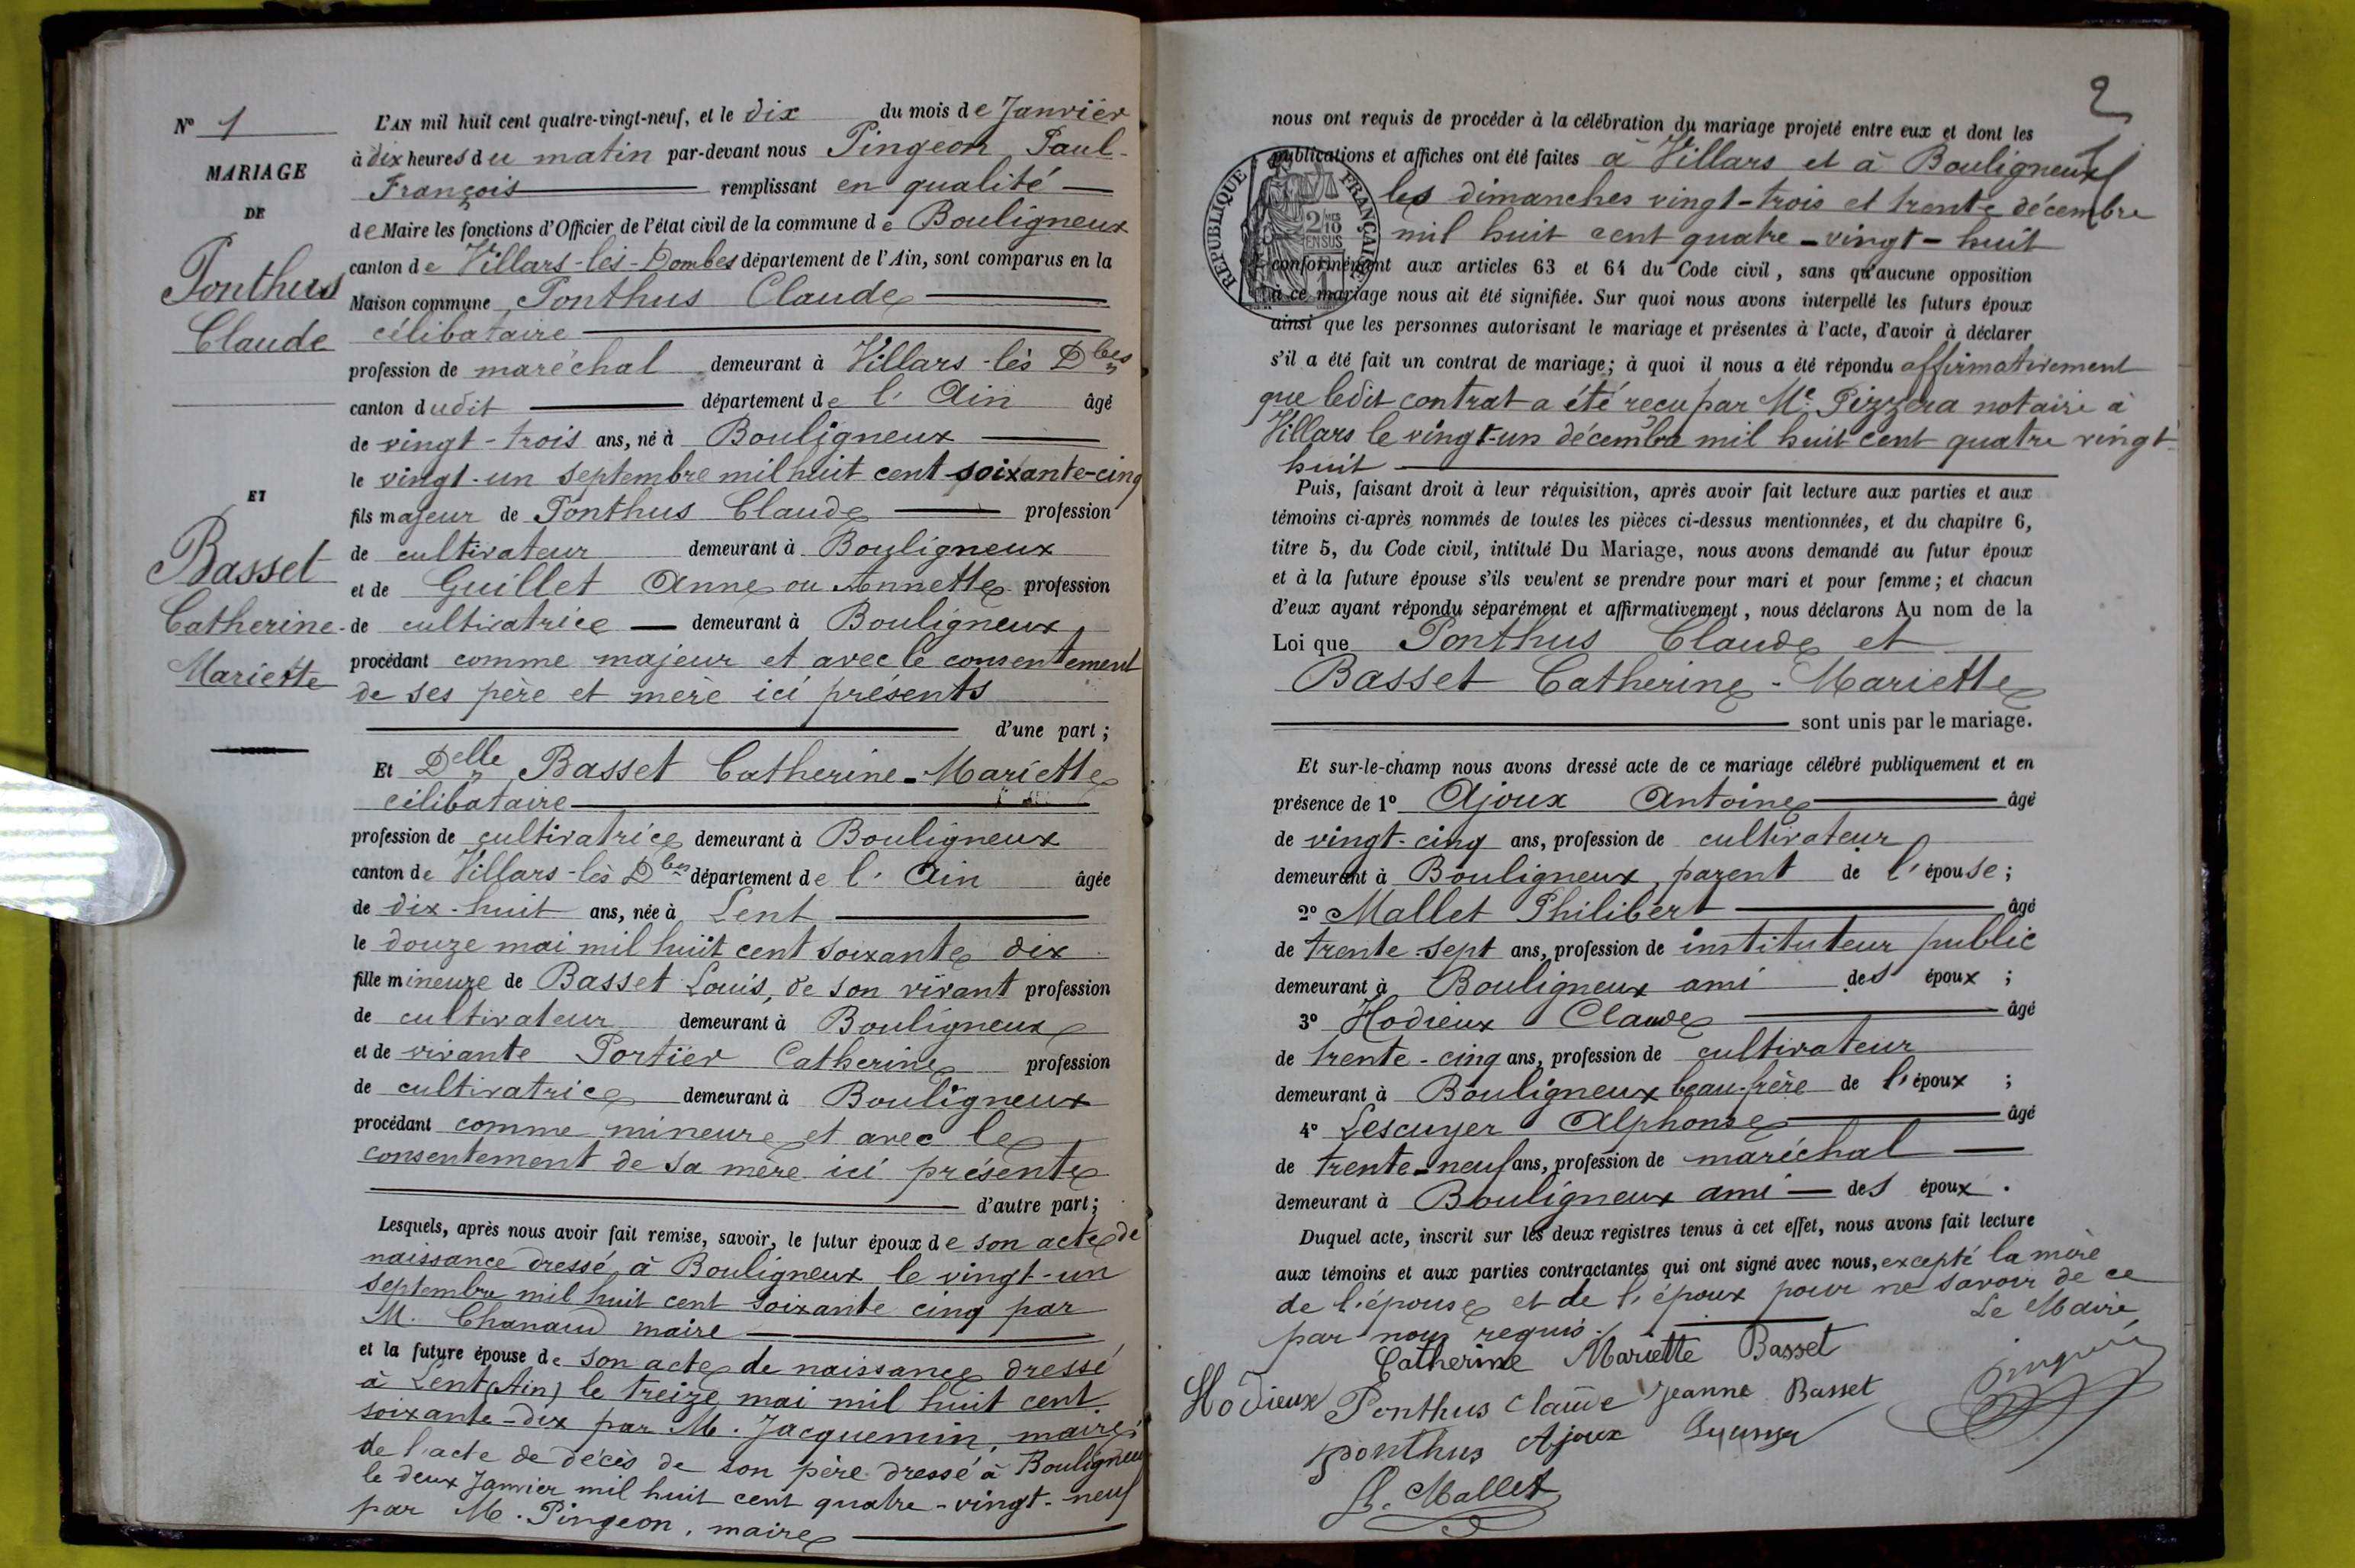 N° 1
MARIAGE
DE
Ponthus
Claude
ET
Basset
Catherine-
Mariette
L'AN mil huit cent quatre-vingt-neuf, et le dix du mois de Janvier
à dix heures du matin par-devant nous Pingeon Paul-
François remplissant en qualité
de Maire les fonctions d'Officier de l'état civil de la commune de Bouligneux
canton de Villars-les-Dombes département de l'Ain, sont comparus en la
Maison commune Ponthus Claude
célibataire
profession de maréchal demeurant à Villars-lès Dbes
canton dudit département de l'Ain âgé
de vingt-trois ans, né à Bouligneux
le vingt-un septembre mil huit cent soixante-cinq
fils majeur de Ponthus Claude profession
de cultivateur demeurant à Bouligneux
et de Guillet Anne ou Annette profession
de cultivatrice demeurant à Bouligneux
procédant comme majeur et avec le consentement
de ses père et mère ici présents
d'une part ;
Et Delle Basset Catherine-Mariette
célibataire
profession de cultivatrice demeurant à Bouligneux
canton de Villars-lès Dbes département de l'Ain âgée
de dix-huit ans, née à Lent
le douze mai mil huit cent soixante dix
fille mineure de Basset Louis, de son vivant profession
de cultivateur demeurant à Bouligneux
et de vivante Portier Catherine profession
de cultivatrice demeurant à Bouligneux
procédant comme mineure et avec le
consentement de sa mère ici présente
d'autre part ;
Lesquels, après nous avoir fait remise, savoir, le futur époux de son acte de
naissance dressé à Bouligneux le vingt-un
septembre mil huit cent soixante cinq par
M. Chanaud maire
et la future épouse de son acte de naissance dressé
à Lent (Ain) le treize mai mil huit cent
soixante-dix par M. Jacquemin, maire;
de l'acte de décès de son père dressé à Bouligneux
le deux Janvier mil huit cent quatre-vingt-neuf
par M. Pingeon, maire
2
nous ont requis de procéder à la célébration du mariage projeté entre eux et dont les
publications et affiches ont été faites à Villars et à Bouligneux
les dimanches vingt-trois et trente décembre
mil huit cent quatre-vingt-huit
RÉPUBLIQUE FRANÇAISE
conformément aux articles 63 et 64 du Code civil, sans qu'aucune opposition
à ce mariage nous ait été signifiée. Sur quoi nous avons interpellé les futurs époux
ainsi que les personnes autorisant le mariage et présentes à l'acte, d'avoir à déclarer
s'il a été fait un contrat de mariage ; à quoi il nous a été répondu affirmativement
que ledit contrat a été recu par Me Pizzera notaire à
Villars le vingt-un décembre mil huit cent quatre vingt-
huit
Puis, faisant droit à leur réquisition, après avoir fait lecture aux parties et aux
témoins ci-après nommés de toutes les pièces ci-dessus mentionnées, et du chapitre 6,
titre 5, du Code civil, intitulé Du Mariage, nous avons demandé au futur époux
et à la future épouse s'ils veulent se prendre pour mari et pour femme ; et chacun
d'eux ayant répondu séparément et affirmativement, nous déclarons Au nom de la
Loi que Ponthus Claude et
Basset Catherine-Mariette
sont unis par le mariage.
Et sur-le-champ nous avons dressé acte de ce mariage célébré publiquement et en
présence de 1° Ajoux Antoine âgé
de vingt-cinq ans, profession de cultivateur
demeurant à Bouligneux, parent de l'épouse ;
2° Mallet Philibert âgé
de trente-sept ans, profession de instituteur public
demeurant à Bouligneux ami des époux ;
3° Hodieux Claude âgé
de trente-cinq ans, profession de cultivateur
demeurant à Bouligneux beau-frère de l'époux ;
4° Lescuyer Alphonse âgé
de trente-neuf ans, profession de maréchal
demeurant à Bouligneux ami des époux.
Duquel acte, inscrit sur les deux registres tenus à cet effet, nous avons fait lecture
aux témoins et aux parties contractantes qui ont signé avec nous, excepté la mère
de l'épouse et de l'époux pour ne savoir de ce
par nous requis. Le Maire
Catherine Mariette Basset
Hodieux Ponthus Claude Jeanne Basset
ponthus Ajoux
Ph. Mallet